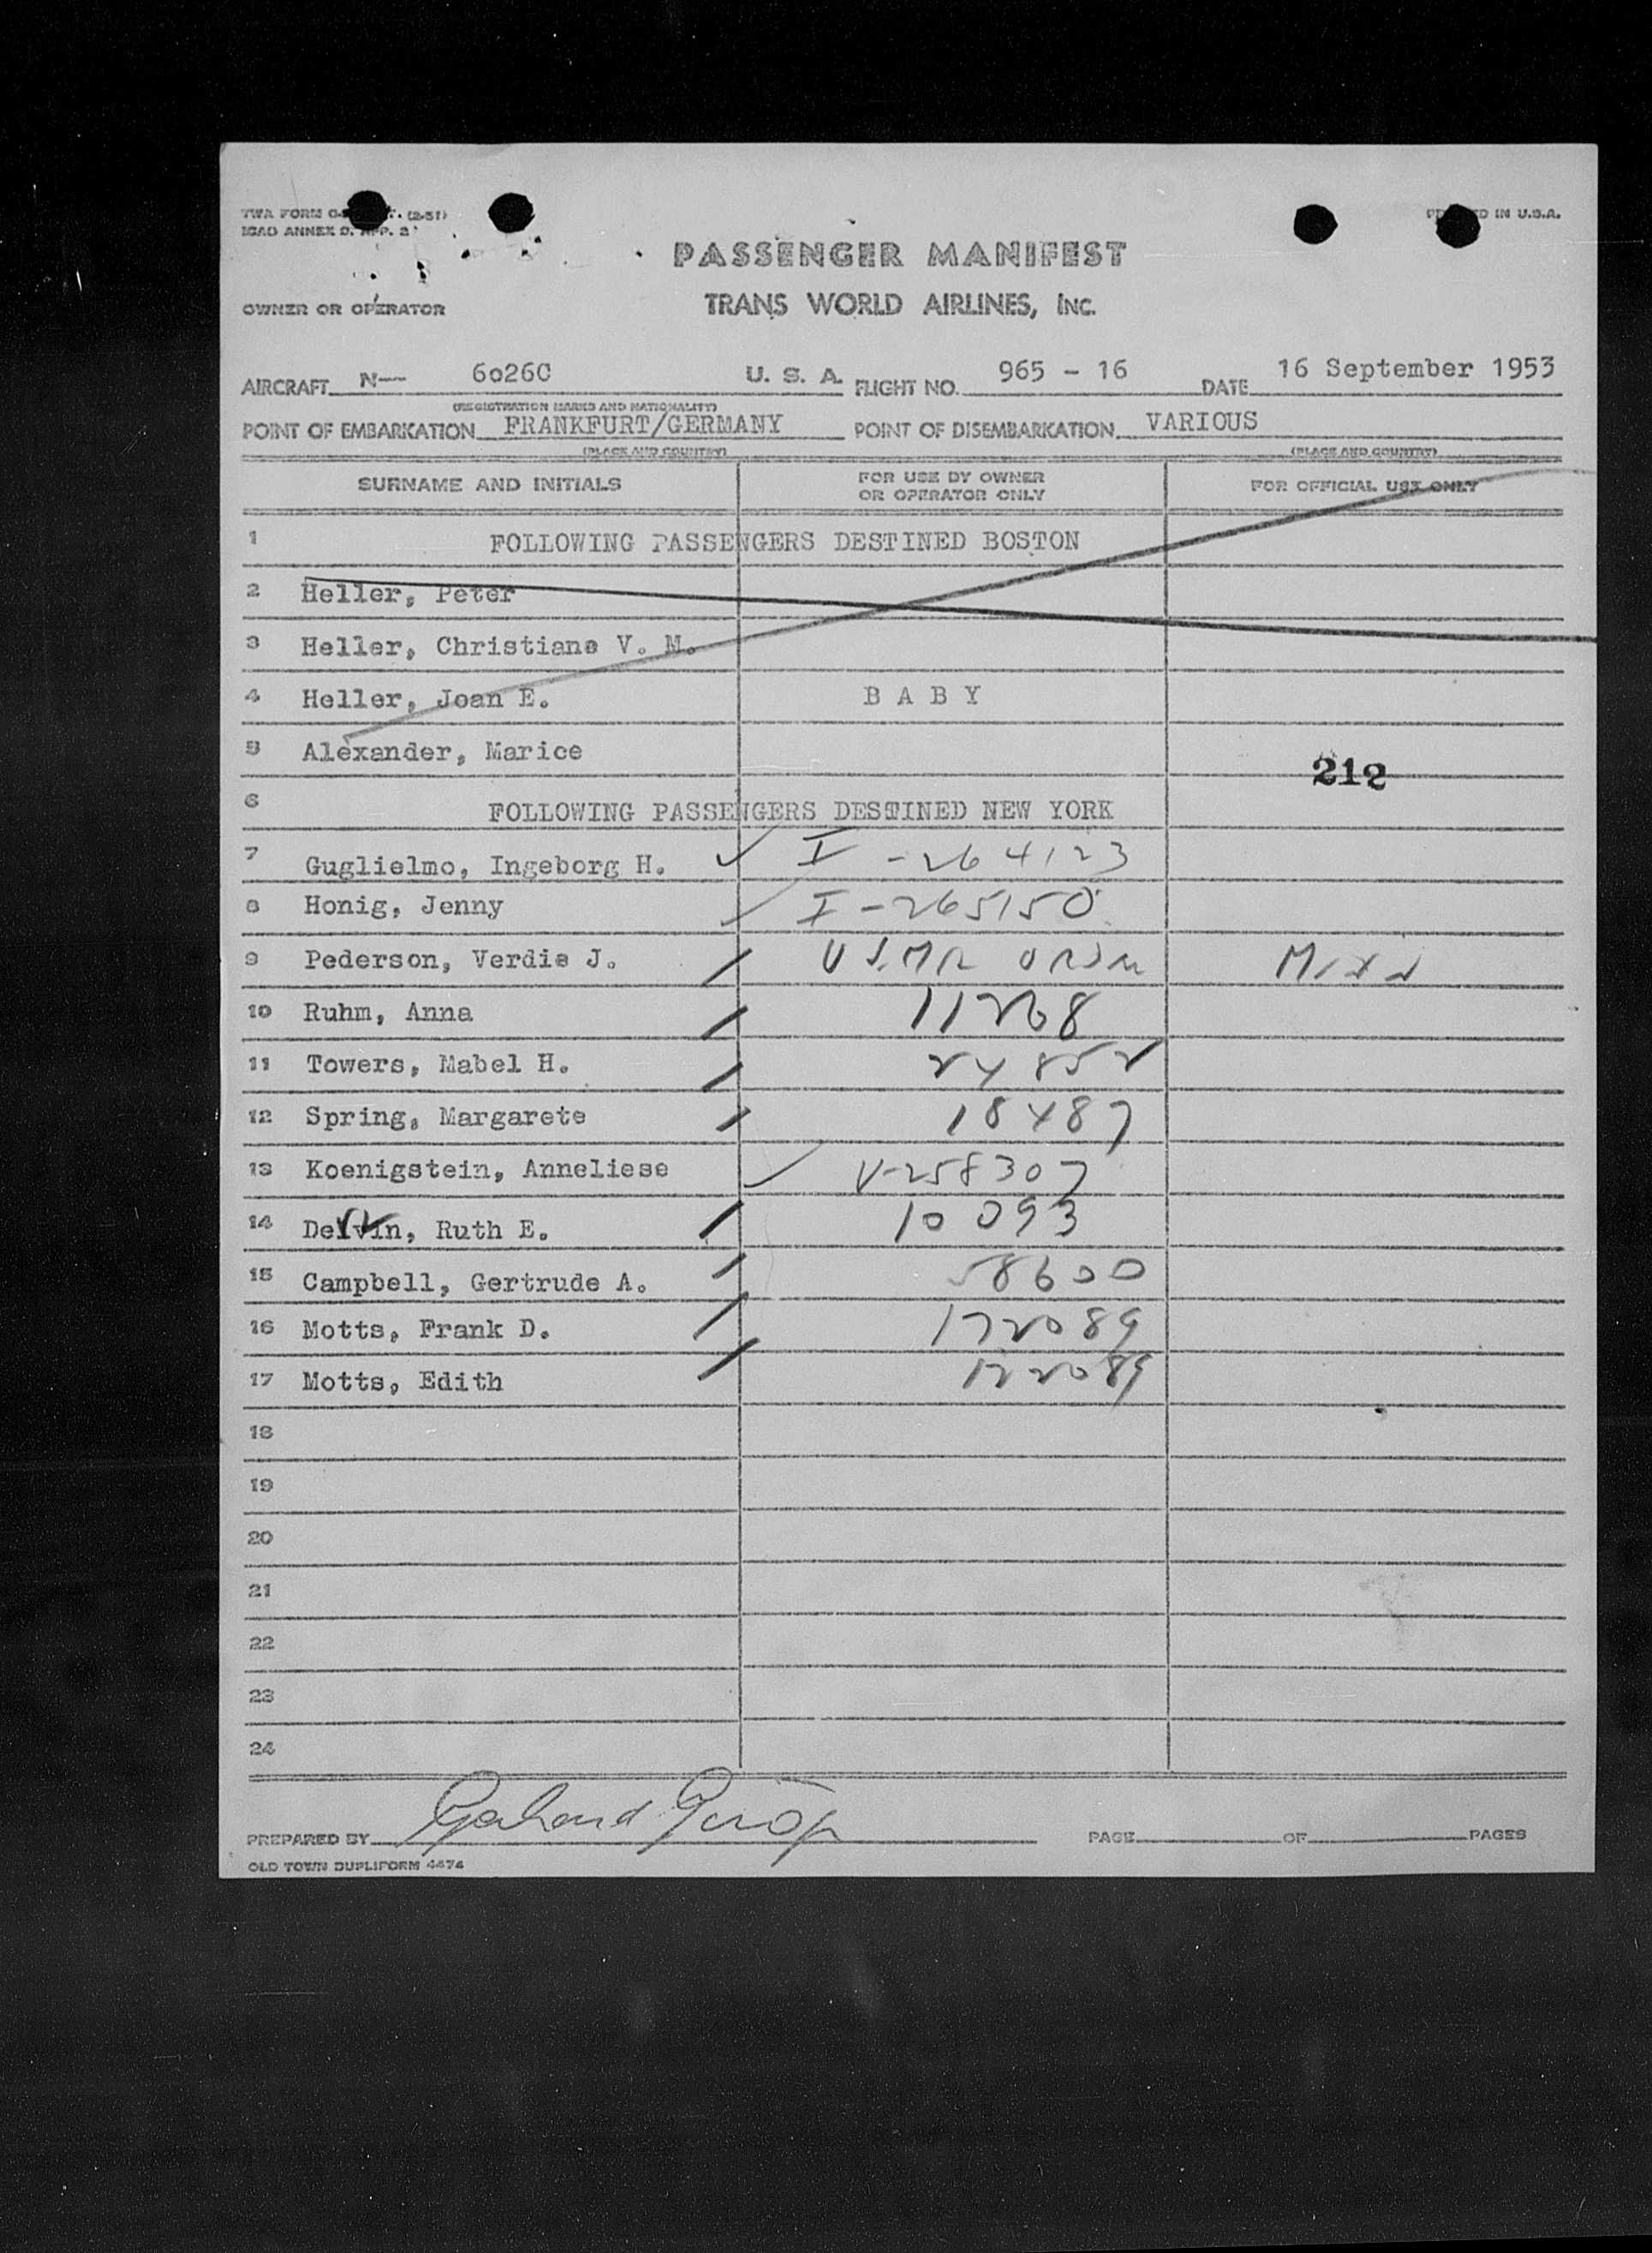 TWA FORM (2-51)
ICAO ANNEX 9, APP. 2
IN U.S.A.
PASSENGER MANIFEST
OWNER OR OPERATOR TRANS WORLD AIRLINES, INC.
AIRCRAFT N— 6026C U. S. A. FLIGHT NO. 965 - 16 DATE 16 September 1953
(REGISTRATION MARKS AND NATIONALITY)
POINT OF EMBARKATION FRANKFURT/GERMANY POINT OF DISEMBARKATION VARIOUS
(PLACE AND COUNTRY) (PLACE AND COUNTRY)
SURNAME AND INITIALS FOR USE BY OWNER OR OPERATOR ONLY FOR OFFICIAL USE ONLY
1 FOLLOWING PASSENGERS DESTINED BOSTON
2 Heller, Peter
3 Heller, Christiane V. M.
4 Heller, Joan E. B A B Y
5 Alexander, Marice
212
6 FOLLOWING PASSENGERS DESTINED NEW YORK
7 Guglielmo, Ingeborg H. I - 264123
8 Honig, Jenny I - 265150
9 Pederson, Verdie J.
10 Ruhm, Anna 11268
11 Towers, Mabel H. 24852
12 Spring, Margarete 18487
13 Koenigstein, Anneliese V-258307
14 Ruth E. 10093
15 Campbell, Gertrude A. 58600
16 Motts, Frank D. 172089
17 Motts, Edith 172089
18
19
20
21
22
23
24
PREPARED BY PAGE OF PAGES
OLD TOWN DUPLIFORM 4474